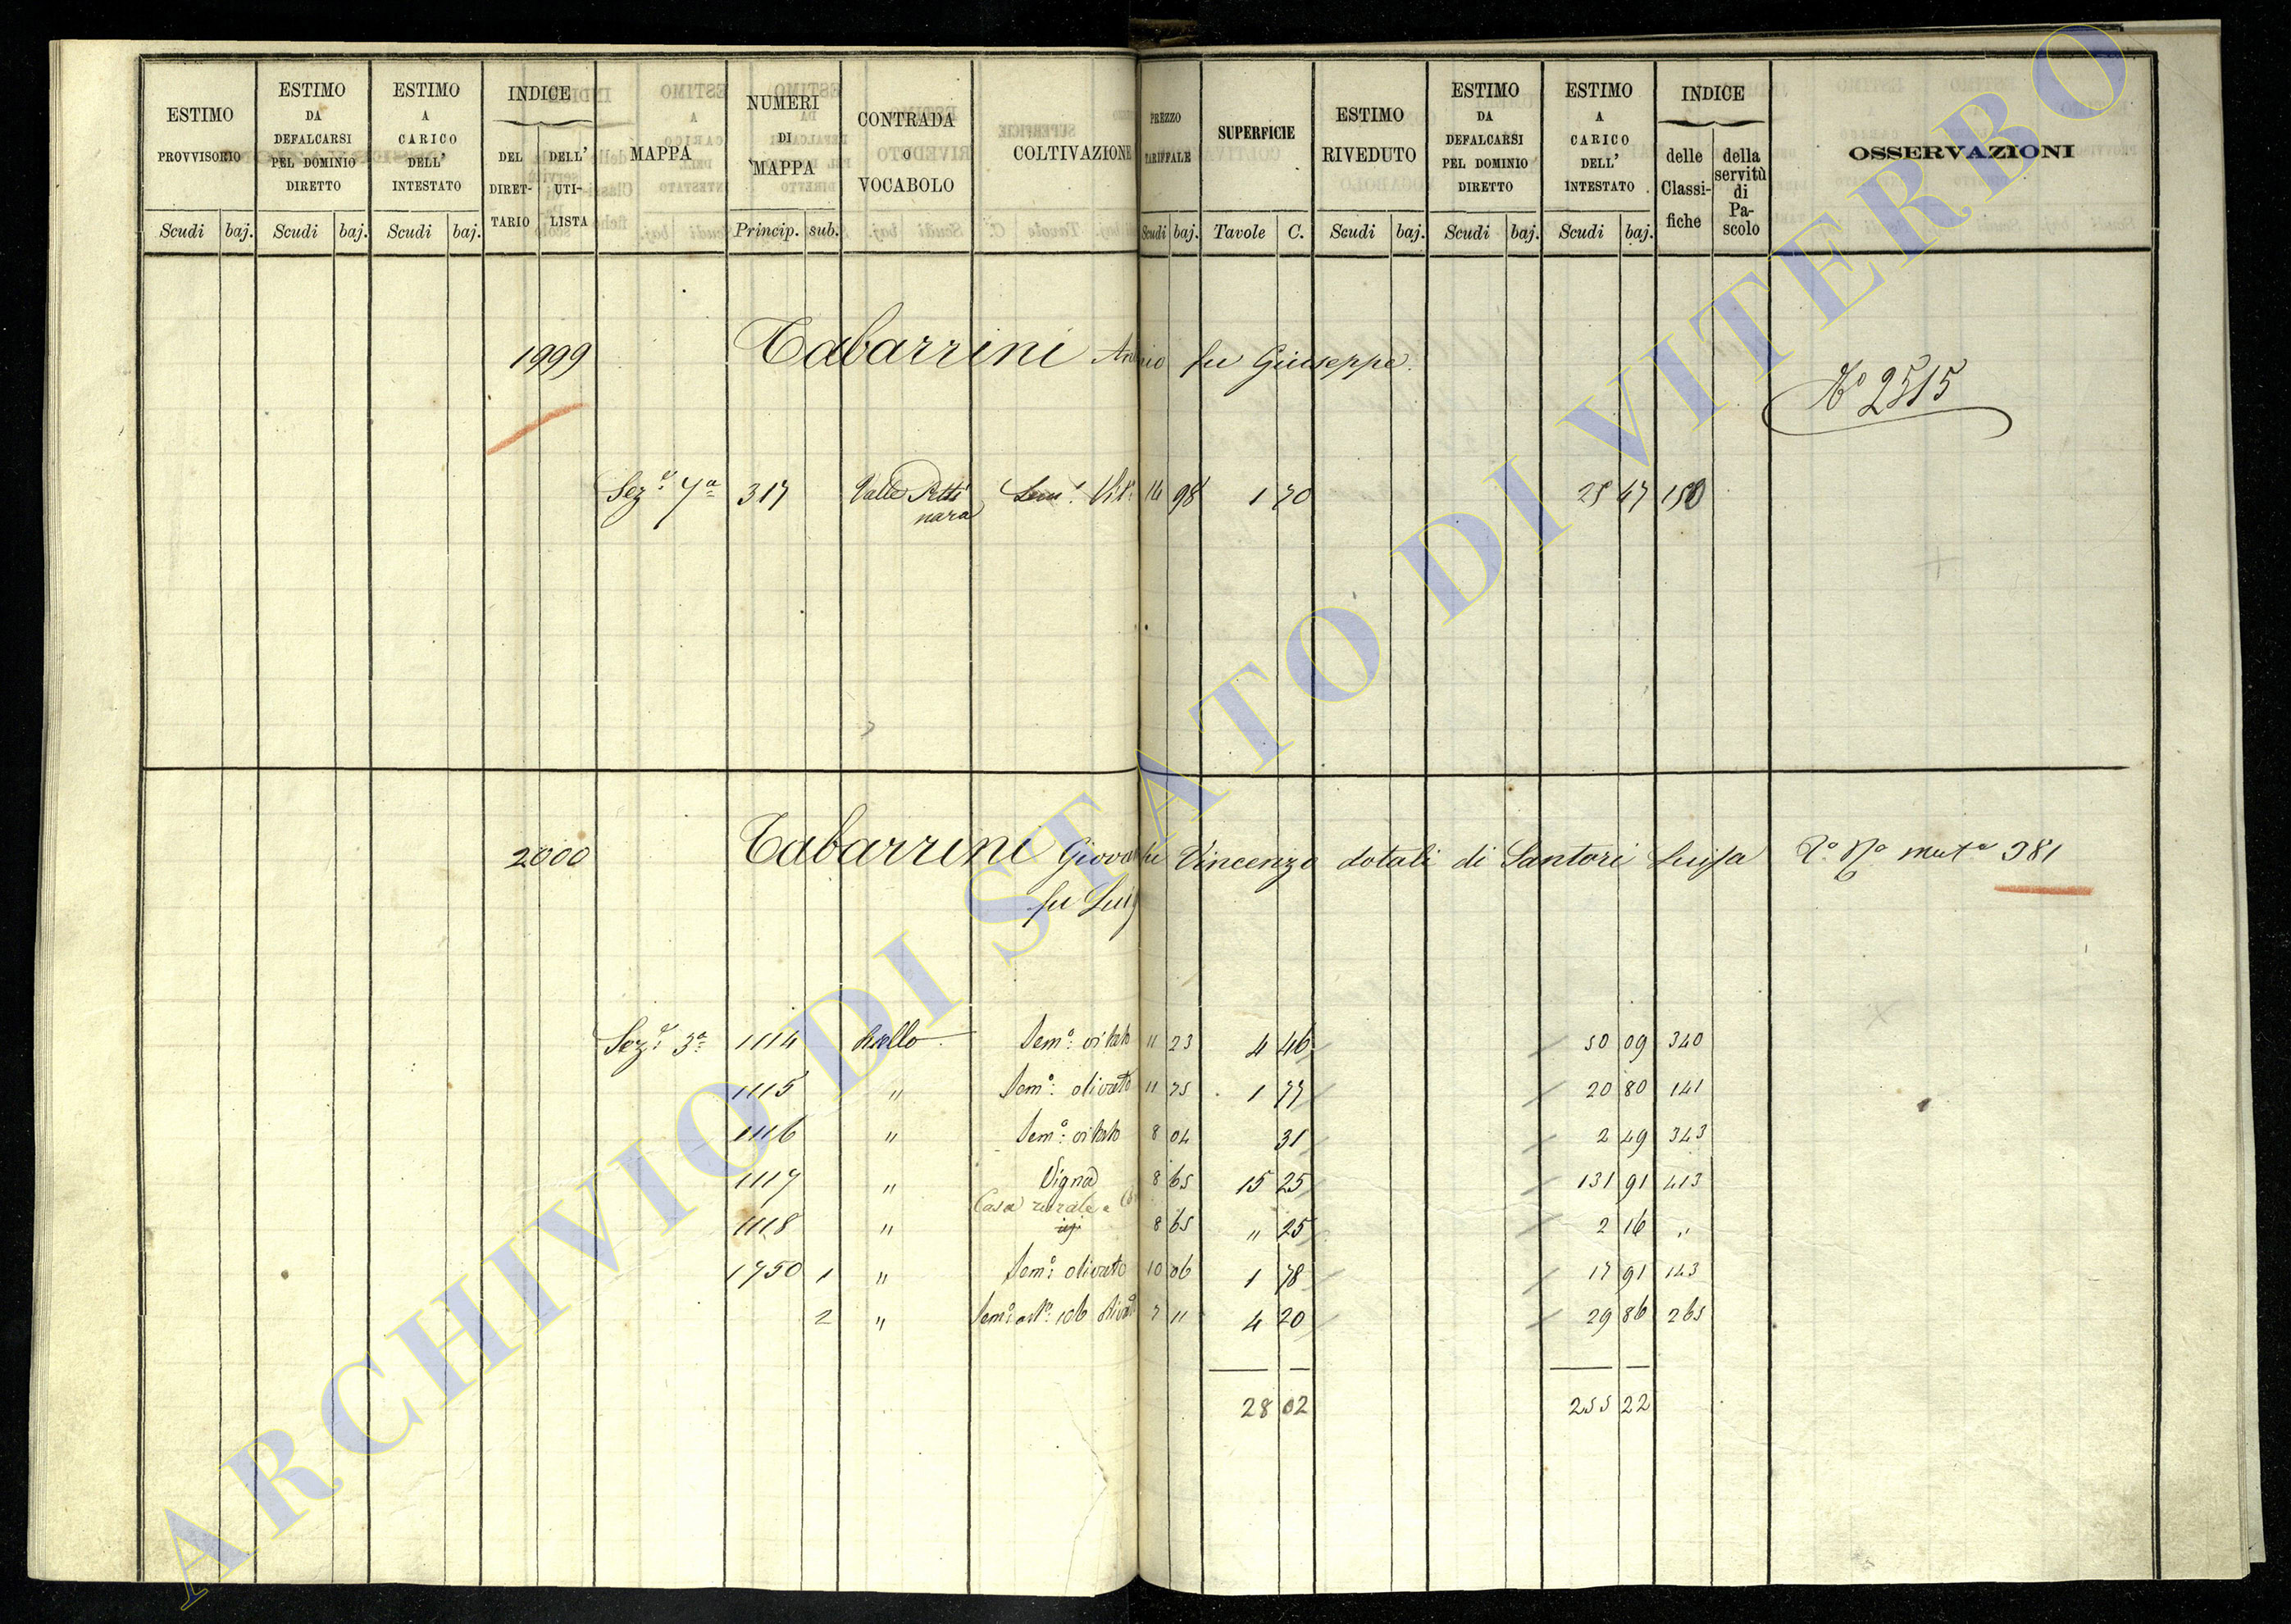 ESTIMO PROVVISORIO
ESTIMO DA DEFALCARSI PEL DOMINIO DIRETTO
ESTIMO A CARICO DELL' INTESTATO
INDICE
DEL DIRET-TARIO
DELL' UTI-LISTA
MAPPA
NUMERI DI MAPPA
CONTRADA O VOCABOLO
COLTIVAZIONE
PREZZO TARIFFALE
SUPERFICIE
ESTIMO RIVEDUTO
ESTIMO DA DEFALCARSI PEL DOMINIO DIRETTO
ESTIMO A CARICO DELL' INTESTATO
INDICE
delle Classi-fiche
della servitù di Pa-scolo
OSSERVAZIONI
Scudi baj. Scudi baj. Scudi baj. Princip. sub. Scudi baj. Tavole C. Scudi baj. Scudi baj. Scudi baj.
1999 Tabarrini fu Giuseppe.
No 2515
Seza: 7a 317 Valle 14 98 1 70 25 47 150
nara
2000 Tabarrini fu Vincenzo dotali di Santori Luisa 381
fu Luig
Seze: 3a 1114 Semo: vitato 11 23 4 46 50 09 340
1115 " Semo: olivato 11 75 1 77 20 80 141
1116 " Semo: vitato 8 04 31 2 49 343
1117 " Vigna 8 65 15 25 131 91 413
Casa rurale e
1118 " 8 65 " 25 2 16 "
1750 1 " Semo: olivato 10 06 1 78 17 91 143
2 " 7 11 4 20 29 86 265
28 02 255 22
ARCHIVIO DI STATO DI VITERBO